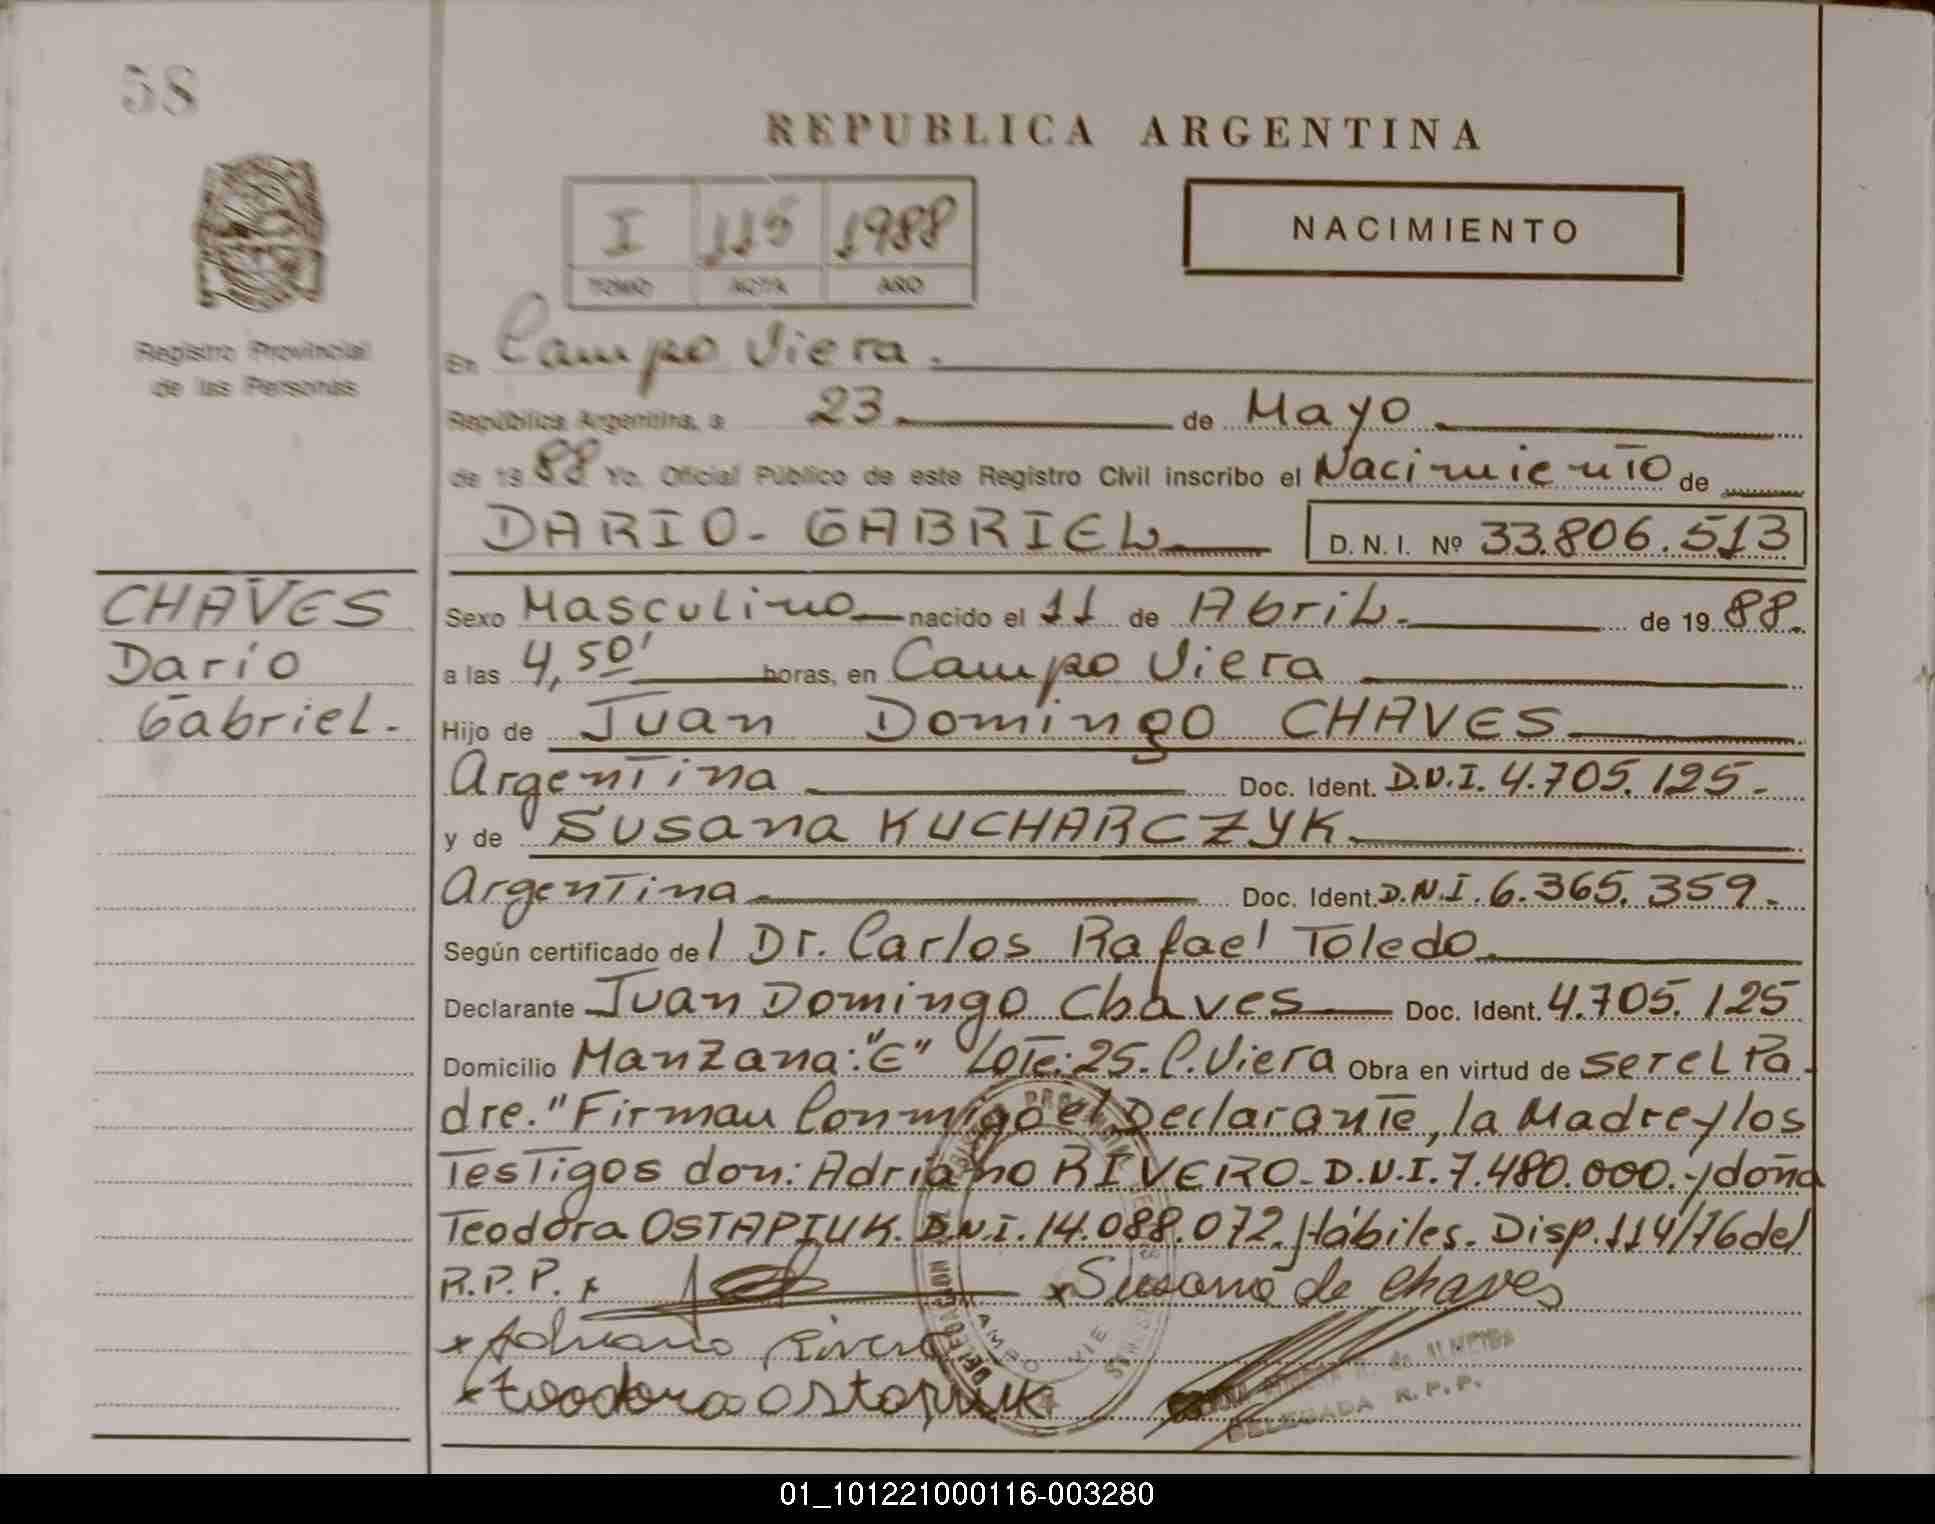 58
REPUBLICA ARGENTINA
I 115 1988
TOMO ACTA AÑO
NACIMIENTO
Registro Provincial
de las Personas
En Campo Viera.
República Argentina, a 23 de Mayo
de 1988 Yo, Oficial Público de este Registro Civil inscribo el Nacimiento de
DARIO- GABRIEL D. N. I. Nº 33.806.513
CHAVES
Darío
Gabriel.-
Sexo Masculino nacido el 11 de Abril.- de 1988.
a las 4,50' horas, en Campo Viera
Hijo de Juan Domingo CHAVES
Argentina Doc. Ident. D.N.I. 4.705.125.-
y de Susana KUCHARCZYK
Argentina Doc. Ident. D.N.I. 6.365.359.-
Según certificado del Dr. Carlos Rafael Toledo
Declarante Juan Domingo Chaves Doc. Ident. 4.705.125
Domicilio Manzana:"E" Lote:25.C.Viera Obra en virtud de ser el Pa-
dre." Firman Conmigo el Declarante, la Madre y los
Testigos don: Adriano RIVERO- D.N.I. 7.480.000.- y doña
Teodora OSTAPIUK. D.N.I. 14.088.072. Hábiles. Disp. 114/76 del
R.P.P. x x Susana de Chaves
x Adriano Rivero
x teodora ostapiuk
de ALMEIDA
DELEGADA R.P.P.
01_101221000116-003280